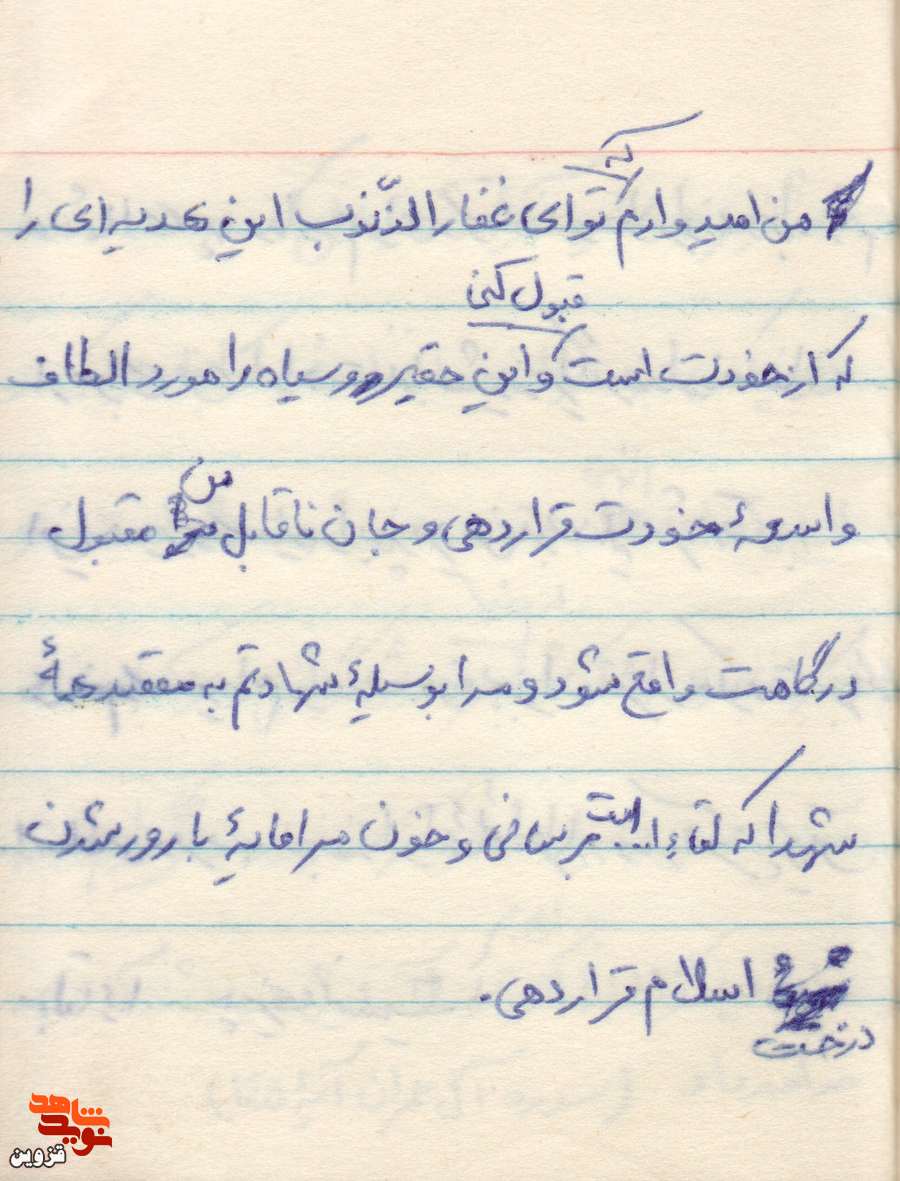 من امیدوارم که تو ای غفار الذّنوب این هدیه‌ای را
که از خودت است قبول کنی و این حقیر روسیاه را مورد الطاف
واسعهٔ خودت قرار دهی و جان ناقابل من مقبول
درگاهت واقع شود و مرا بوسیلهٔ شهادتم به همهٔ
شهدا که لقاء است برسانی و خون مرا مایهٔ بارور شدن
درخت اسلام قرار دهی.
شاهد
نوید
قزوین